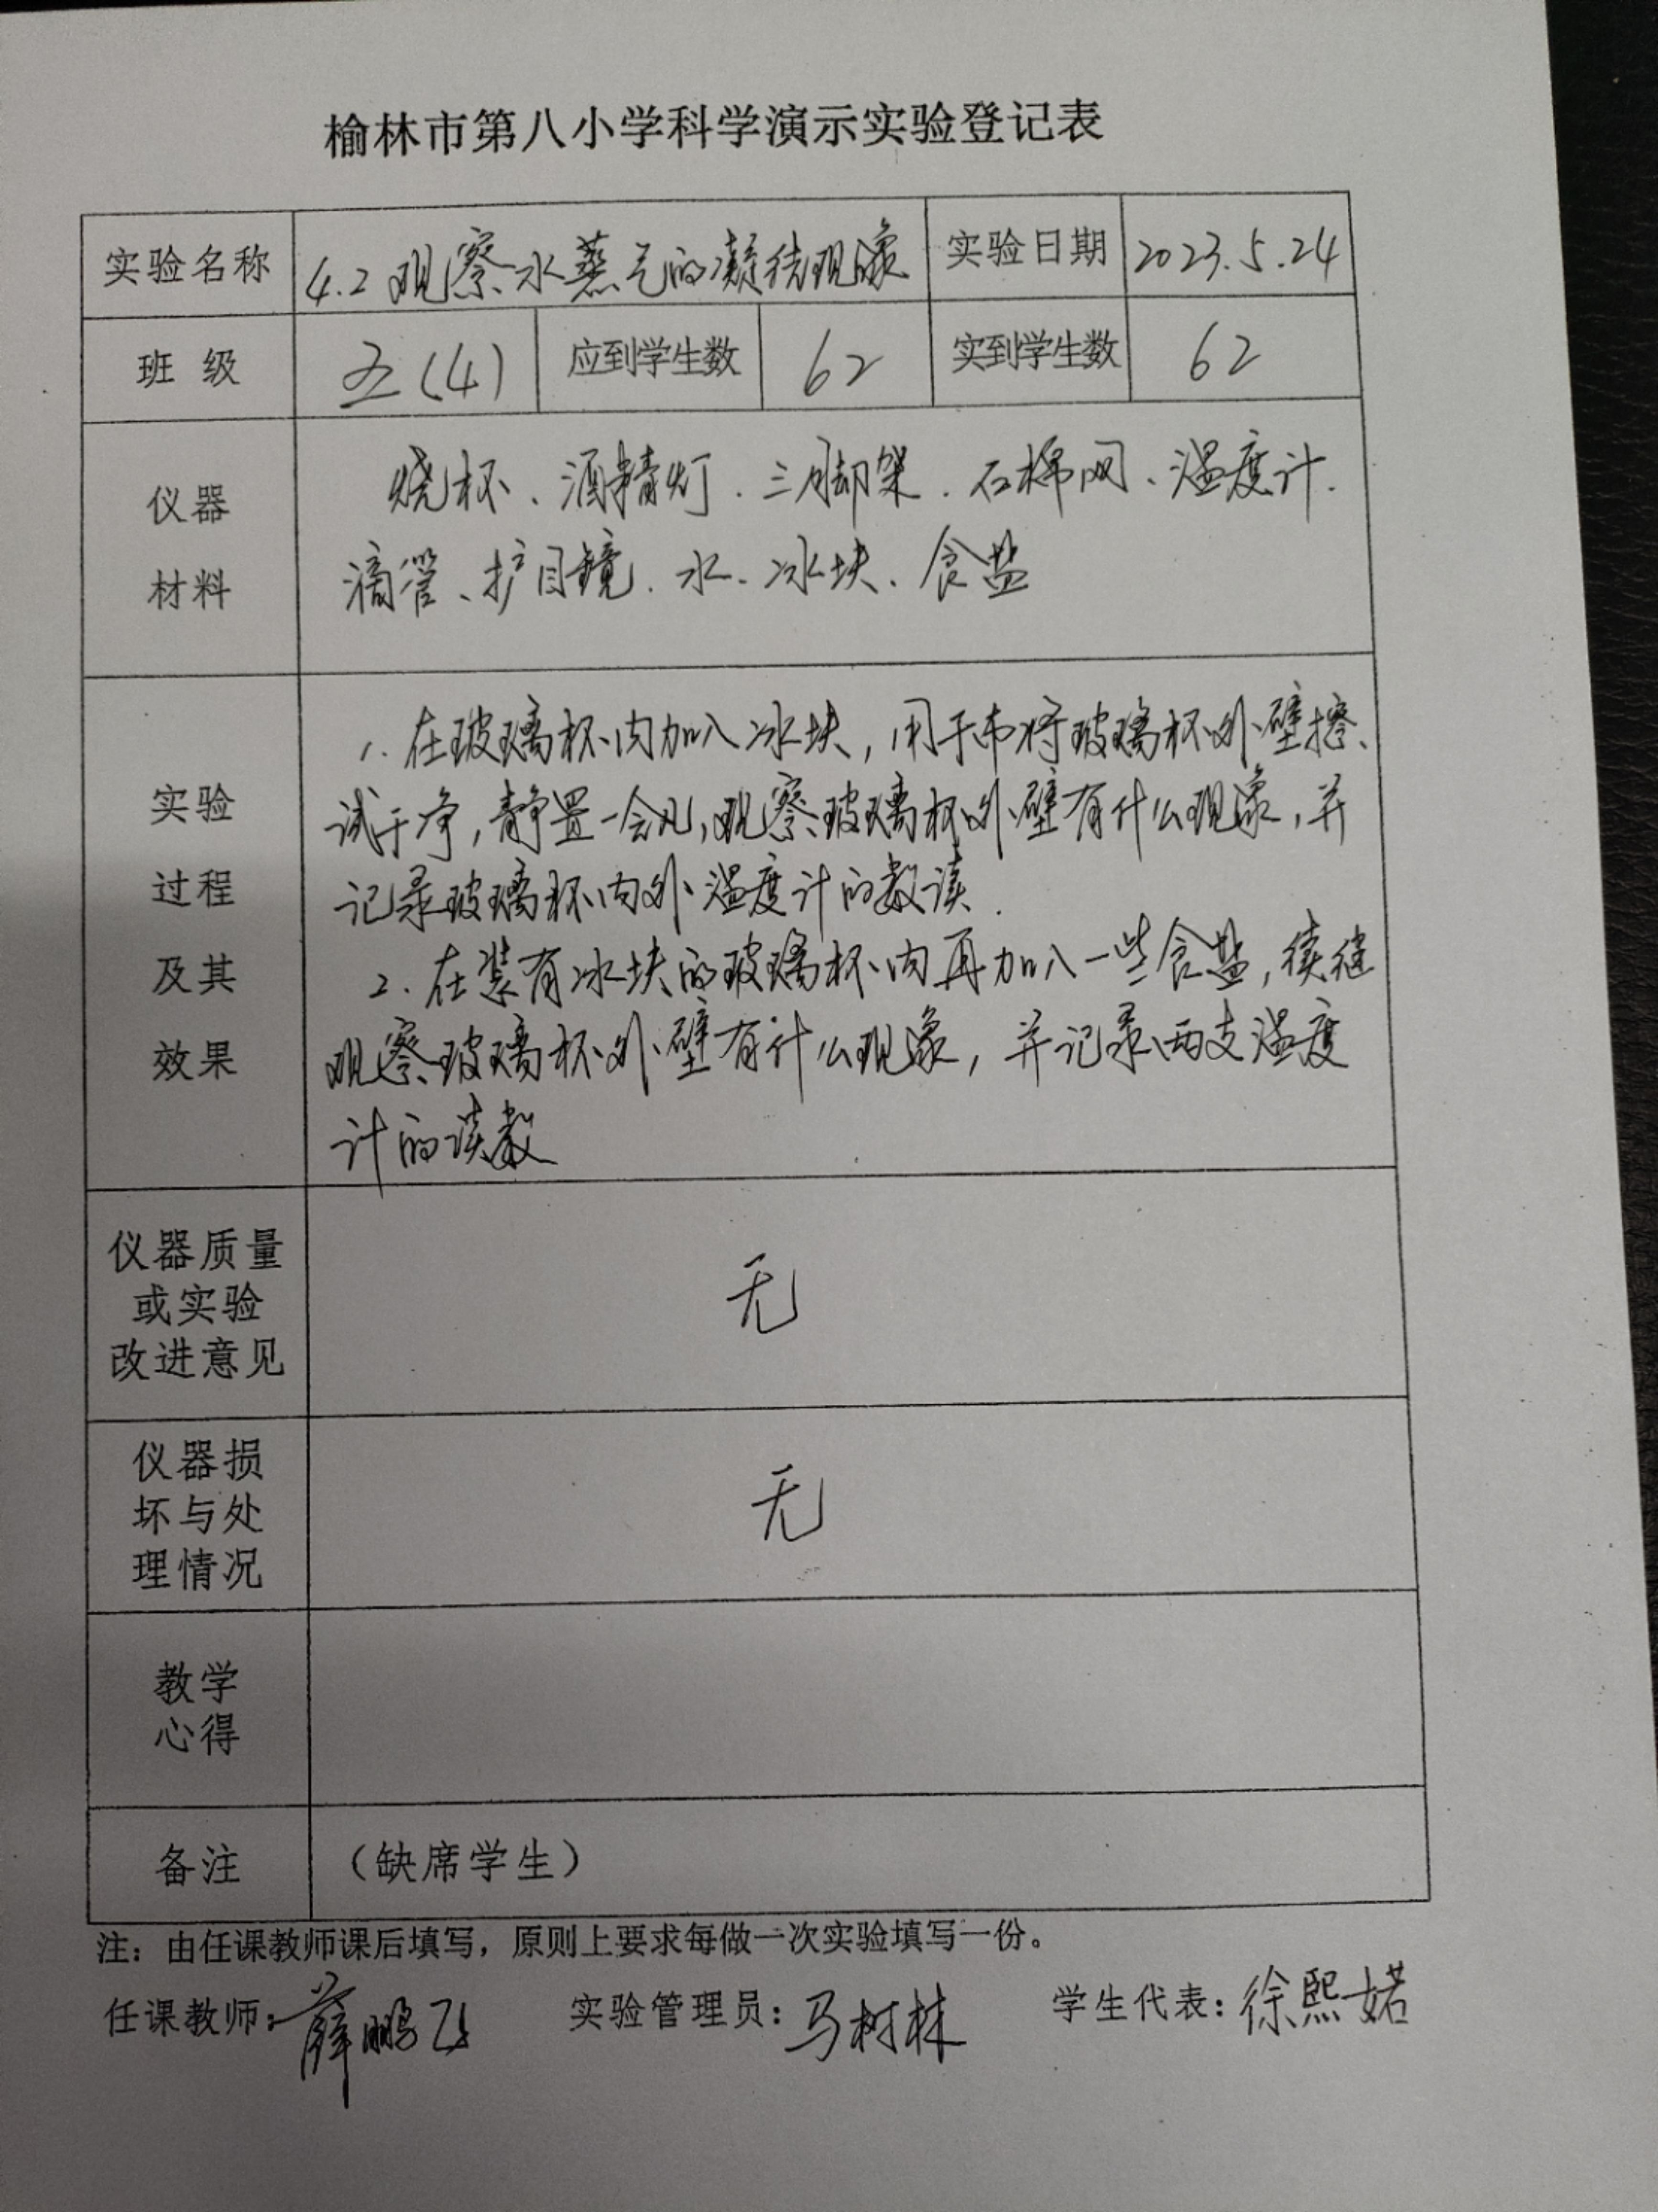 榆林市第八小学科学演示实验登记表
实验名称 4.2 观察水蒸气的凝结现象 实验日期 2023.5.24
班 级 五(4) 应到学生数 62 实到学生数 62
仪器
材料
烧杯、酒精灯、三脚架、石棉网、温度计、
滴管、护目镜、水、冰块、食盐
实验
过程
及其
效果
1.在玻璃杯内加入冰块,用干布将玻璃杯外壁擦
试干净,静置一会儿,观察玻璃杯外壁有什么现象,并
记录玻璃杯内外温度计的数读.
2.在装有冰块的玻璃杯内再加入一些食盐,续继
观察玻璃杯外壁有什么现象,并记录两支温度
计的读数
仪器质量
或实验
改进意见
无
仪器损
坏与处
理情况
无
教学
心得
备注 (缺席学生)
注:由任课教师课后填写,原则上要求每做一次实验填写一份。
任课教师:薛鹏飞 实验管理员:马树林 学生代表:徐熙婼